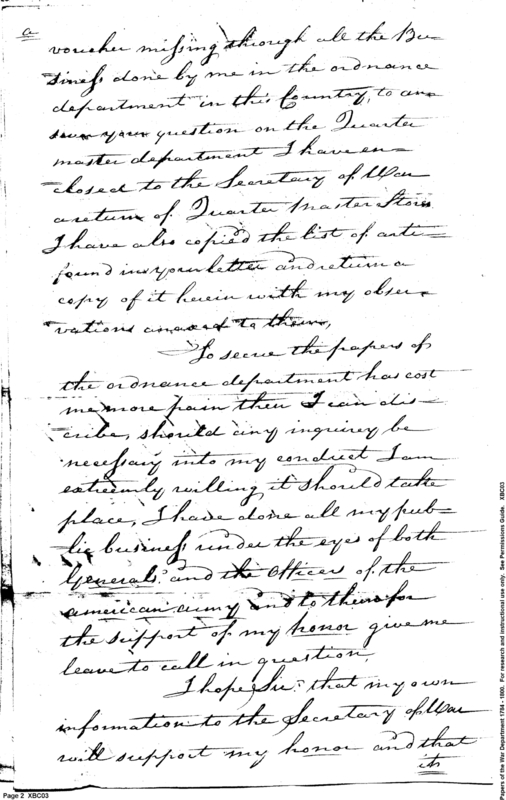 a
voucher missing through all the Bu-
siness done by me in the ordnance
department in this Country, to an-
swer your question on the Quarter
master department I have en-
closed to the Secretary of War
a return of Quarter Master Stores
I have also copied the list of
found in your letter and return a
copy of it herein with my obser-
vations annexed to them,
To secure the papers of
the ordnance department has cost
me more pain then I can dis-
cribe, should any inquirey be
necessary into my conduct I am
extreemly willing it should take
place, I have done all my pub-
lic business under the eyes of both
Generals, and the Officers of the
american army and to them for
the support of my honor give me
leave to call in question,
I hope Sir, that my own
information to the Secretary of War
will support my honor and that
its
Page 2 XBC03
Papers of the War Department 1784 - 1800. For research and instructional use only. See Permissions Guide. XBC03